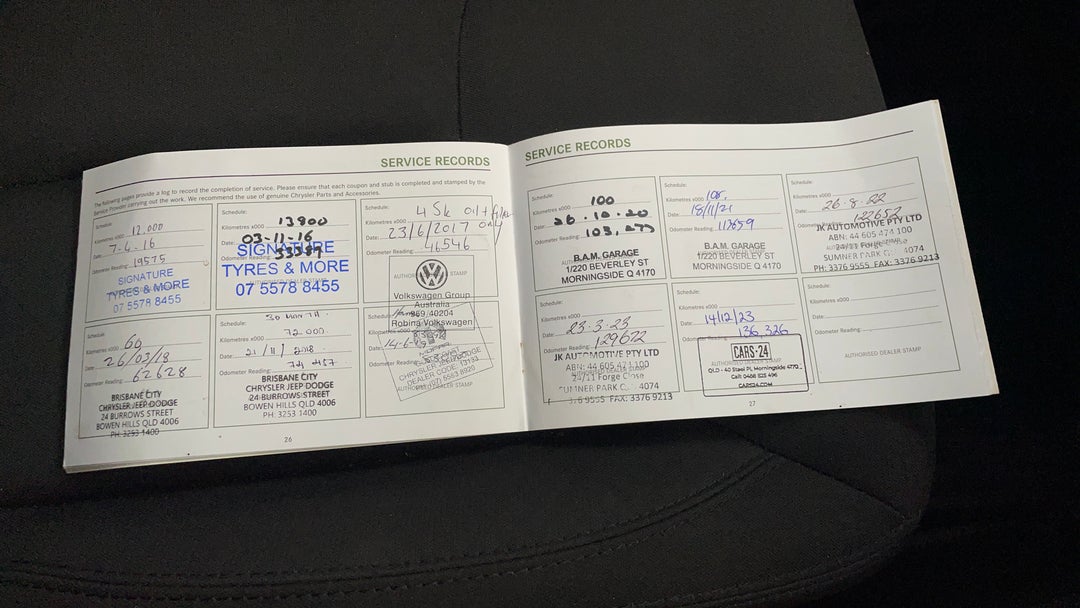 SERVICE RECORDS
The following pages provide a log to record the completion of service. Please ensure that each coupon and stub is completed and stamped by the
Service Provider carrying out the work. We recommend the use of genuine Chrysler Parts and Accessories.
Schedule:
Kilometres x000 12,000
Date: 7-6-16
Odometer Reading: 19575
SIGNATURE
TYRES & MORE
07 5578 8455
Schedule:
Kilometres x000 13800
Date: 03-11-16
Odometer Reading: 33389
SIGNATURE
TYRES & MORE
07 5578 8455
Schedule: 45k oil + filter only
Kilometres x000
Date: 23/6/2017
Odometer Reading: 46546
Volkswagen Group
Australia
Robina Volkswagen
Schedule:
Kilometres x000 60
Date: 26/03/18
Odometer Reading: 62628
BRISBANE CITY
CHRYSLER JEEP DODGE
24 BURROWS STREET
BOWEN HILLS QLD 4006
PH: 3253 1400
Schedule:
Kilometres x000 72 000
Date: 21/11/2018
Odometer Reading:
BRISBANE CITY
CHRYSLER JEEP DODGE
24 BURROWS STREET
BOWEN HILLS QLD 4006
PH: 3253 1400
Schedule:
Kilometres x000
Date:
Odometer Reading:
CHRYSLER JEEP DODGE
26
SERVICE RECORDS
Schedule:
Kilometres x000 100
Date: 26.10.20
Odometer Reading: 103,
B.A.M. GARAGE
1/220 BEVERLEY ST
MORNINGSIDE Q 4170
Schedule:
Kilometres x000
Date: 18/11/21
Odometer Reading: 113659
B.A.M. GARAGE
1/220 BEVERLEY ST
MORNINGSIDE Q 4170
Schedule:
Kilometres x000
Date: 26-8-22
Odometer Reading: 122652
JK AUTOMOTIVE PTY LTD
ABN: 44 605 474 100
24/11 Forge Close
SUMNER PARK 4074
PH: 3376 9555 FAX: 3376 9213
Schedule:
Kilometres x000
Date: 23-3-23
Odometer Reading: 129672
JK AUTOMOTIVE PTY LTD
ABN: 44 605 474 100
24/11 Forge Close
SUMNER PARK 4074
FAX: 3376 9213
Schedule:
Kilometres x000
Date: 14/12/23
Odometer Reading: 136,326
CARS·24
QLD - 40 Steel Pl, Morningside 4170
CARS24.COM
Schedule:
Kilometres x000
Date:
Odometer Reading:
AUTHORISED DEALER STAMP
27